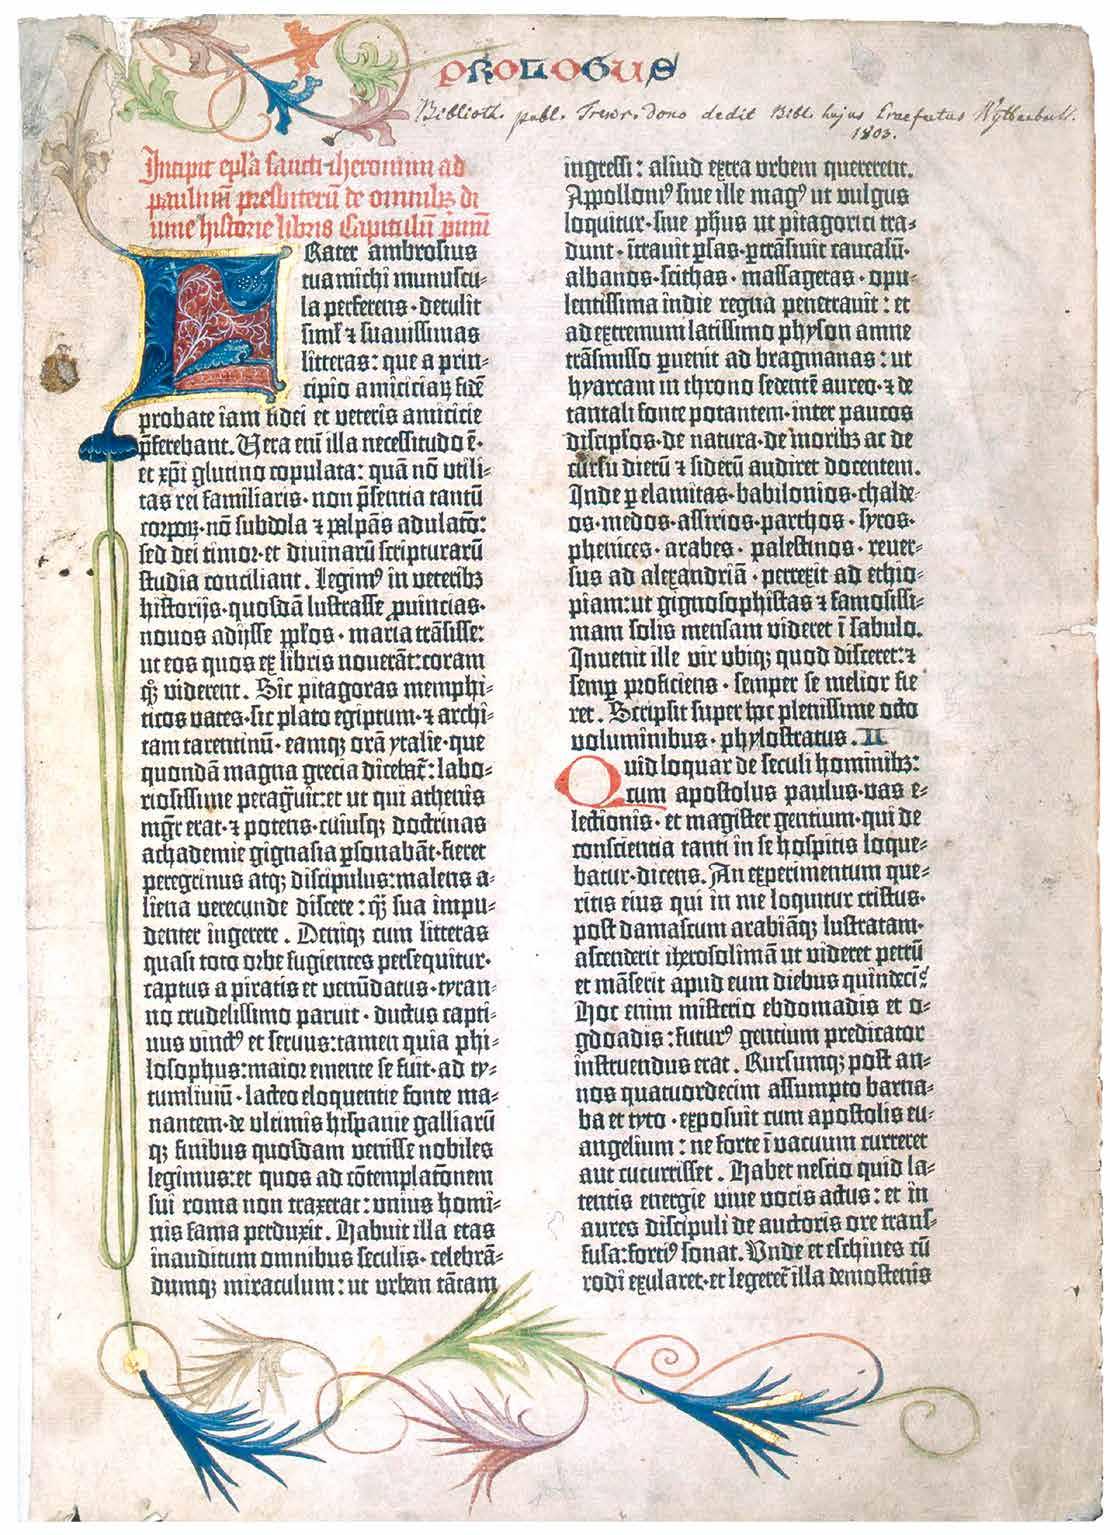 PROLOGUS
Biblioth. publ. Trevir. dono dedit Bibl. hujus Praefectus Wyttenbach.
1803.
Incipit epl̃a sancti iheronimi ad
paulinũ presbiterũ de omnibꝫ di
uine historie libris Capitulũ p̃mũ
FRater ambrosius
tua michi munuscu-
la perferens · detulit
siml̃ ⁊ suavissimas
litteras: que a prin-
cipio amiciciaꝝ fidẽ
probate iam fidei et veteris amicicie
p̃ferebant. Vera enĩ illa necessitudo ẽ ·
et xp̃i glutino copulata: quã nõ utili-
tas rei familiaris · non p̃sentia tantũ
corpoꝝ · nõ subdola ⁊ palpãs adulatõ:
sed dei timor · et divinarũ scripturarũ
studia conciliant. Legimꝰ in veteribꝫ
historijs · quosdã lustrasse ꝓuincias ·
novos adijsse ppl̃os · maria trãsisse:
ut eos quos ex libris noverãt: coram
qꝫ viderent. Sic pitagoras memphi-
ticos vates · sic plato egiptum · ⁊ archi-
tam tarentinũ · eamqꝫ orã ytalie · que
quondã magna grecia dicebat̃: labo-
riosissime peragravit: et ut qui athenis
mgr̃ erat · ⁊ potens · cuiusqꝫ doctrinas
achademie gignasia ꝑsonabãt · fieret
peregrinus atqꝫ discipulus: malens a-
liena verecunde discere: qꝫ sua impu-
denter ingerere. Deniqꝫ cum litteras
quasi toto orbe fugientes persequitur ·
captus a piratis et venũdatus · tyran-
no crudelissimo paruit · ductus capti-
uus vinctꝰ et seruus: tamen quia phi-
losophus: maior emente se fuit · ad ty-
tumlivium · lacteo eloquentie fonte ma-
nantem · de ultimis hispanie galliarũ
qꝫ finibus quosdam venisse nobiles
legimus: et quos ad cõtemplatõnem
sui roma non traxerat: unius homi-
nis fama perduxit. Habuit illa etas
inauditum omnibus seculis · celebrã-
dumqꝫ miraculum: ut urbem tãtam
ingressi: aliud extra urbem quererent.
Appolloniꝰ sive ille magꝰ ut vulgus
loquitur · sive ph̃us ut pitagorici tra-
dunt · ĩtravit ꝑsas · ꝑtrãsivit caucasũ ·
albanos · scithas · massagetas · opu-
lentissima indie regna penetravit: et
ad extremum latissimo physon amne
trãsmisso ꝑvenit ad bragmanas: ut
hyarcam in throno sedentẽ aureo · ⁊ de
tantali fonte potantem · inter paucos
discipl̃os · de natura · de moribꝫ ac de
cursu dierũ ⁊ siderũ audiret docentem.
Inde ꝑ elamitas · babilonios · chalde-
os · medos · assirios · parthos · syros ·
phenices · arabes · palestinos · rever-
sus ad alexandriã · perrexit ad ethio-
piam: ut gignosophistas ⁊ famosissi-
mam solis mensam videret ĩ sabulo.
Invenit ille vir ubiqꝫ quod disceret: ⁊
semꝑ proficiens · semper se melior fie
ret. Scripsit super hoc plenissime octo
voluminibus · phylostratus. II
Quid loquar de seculi hominibꝫ:
cum apostolus paulus · vas e-
lectionis · et magister gentium · qui de
conscientia tanti in se hospitis loque-
batur · dicens. An experimentum que-
ritis eius qui in me loquitur cristus ·
post damascum arabiãqꝫ lustratam ·
ascenderit iherosolimã ut videret petrũ
et mãserit apud eum diebus quindecĩ:
Hoc enim misterio ebdomadis et o-
gdoadis: futurꝰ gentium predicator
instruendus erat. Rursumqꝫ post an-
nos quatuordecim assumpto barna-
ba et tyto · exposuit cum apostolis eu-
angelium: ne forte ĩ vacuum curreret
aut cucurrisset. Habet nescio quid la-
tentis energie vive vocis actus: et in
aures discipuli de auctoris ore trans-
fusa: fortiꝰ sonat. Unde et eschines cũ
rodi exularet · et legeret̃ illa demostenis